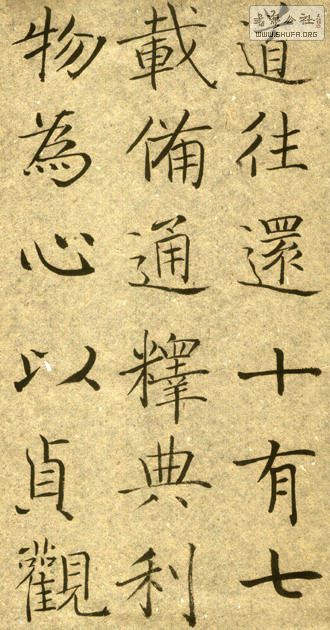 道往還十有七
載備通釋典利
物為心以貞觀
WWW.SHUFA.ORG